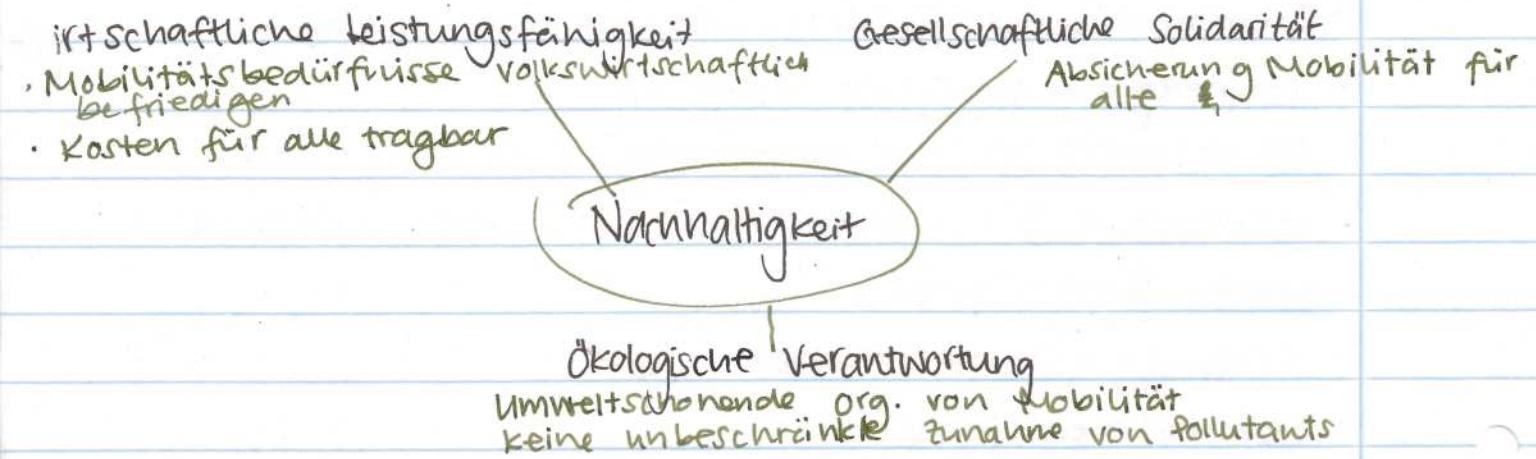 irtschaftliche Leistungsfähigkeit
· Mobilitätsbedürfnisse volkswirtschaftlich
befriedigen
· Kosten für alle tragbar
Gesellschaftliche Solidarität
Absicherung Mobilität für
alle
Nachhaltigkeit
Ökologische Verantwortung
Umweltschonende Org. von Mobilität
keine unbeschränkte Zunahme von Pollutants